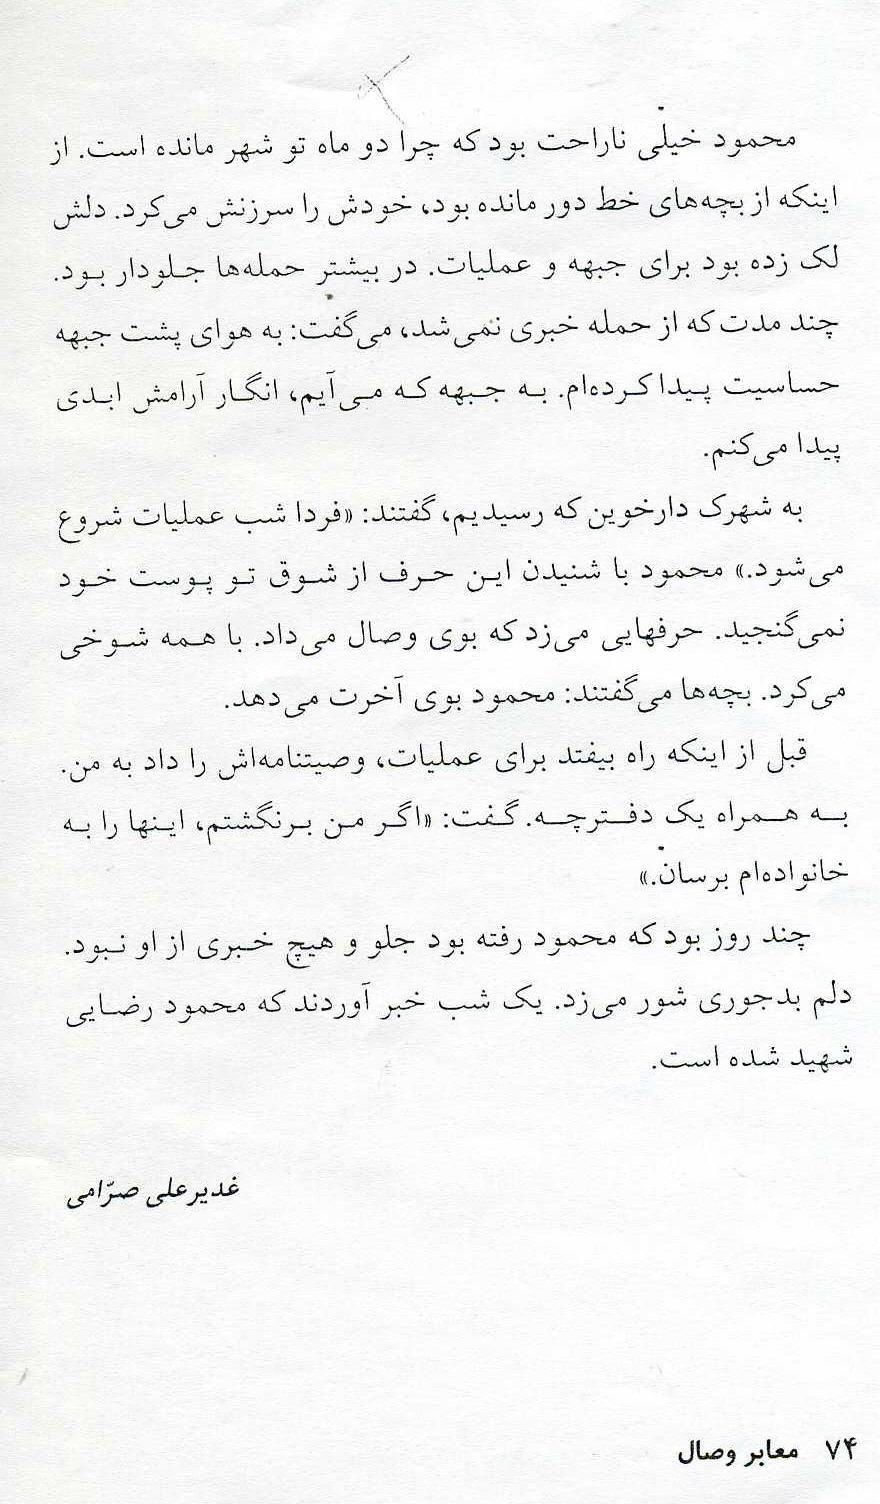 محمود خیلی ناراحت بود که چرا دو ماه تو شهر مانده است. از
اینکه از بچه‌های خط دور مانده بود، خودش را سرزنش می‌کرد. دلش
لک زده بود برای جبهه و عملیات. در بیشتر حمله‌ها جلودار بود.
چند مدت که از حمله خبری نمی‌شد، می‌گفت: به هوای پشت جبهه
حساسیت پیدا کرده‌ام. به جبهه که می‌آیم، انگار آرامش ابدی
پیدا می‌کنم.
به شهرک دارخوین که رسیدیم، گفتند: «فردا شب عملیات شروع
می‌شود.» محمود با شنیدن این حرف از شوق تو پوست خود
نمی‌گنجید. حرفهایی می‌زد که بوی وصال می‌داد. با همه شوخی
می‌کرد. بچه‌ها می‌گفتند: محمود بوی آخرت می‌دهد.
قبل از اینکه راه بیفتد برای عملیات، وصیتنامه‌اش را داد به من.
به همراه یک دفترچه. گفت: «اگر من برنگشتم، اینها را به
خانواده‌ام برسان.»
چند روز بود که محمود رفته بود جلو و هیچ خبری از او نبود.
دلم بدجوری شور می‌زد. یک شب خبر آوردند که محمود رضایی
شهید شده است.
غدیرعلی صرّامی
۷۴ معابر وصال